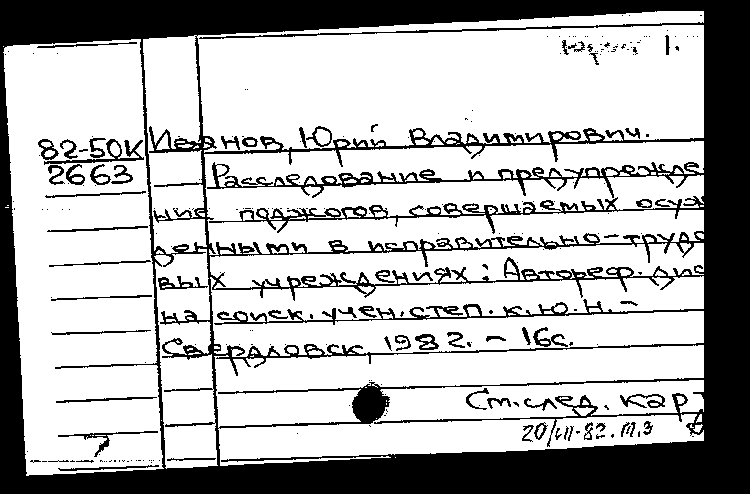 Юрид 1.
82-50К Иванов, Юрий Владимирович.
2663 Расследование и предупрежде-
ние поджогов, совершаемых осуж
денными в исправительно-трудо
вых учреждениях: Автореф. дис
на соиск. учен. степ. к. ю. н. –
Свердловск, 1982. – 16с.
См. след. кар
20/VII-82. М.З
7